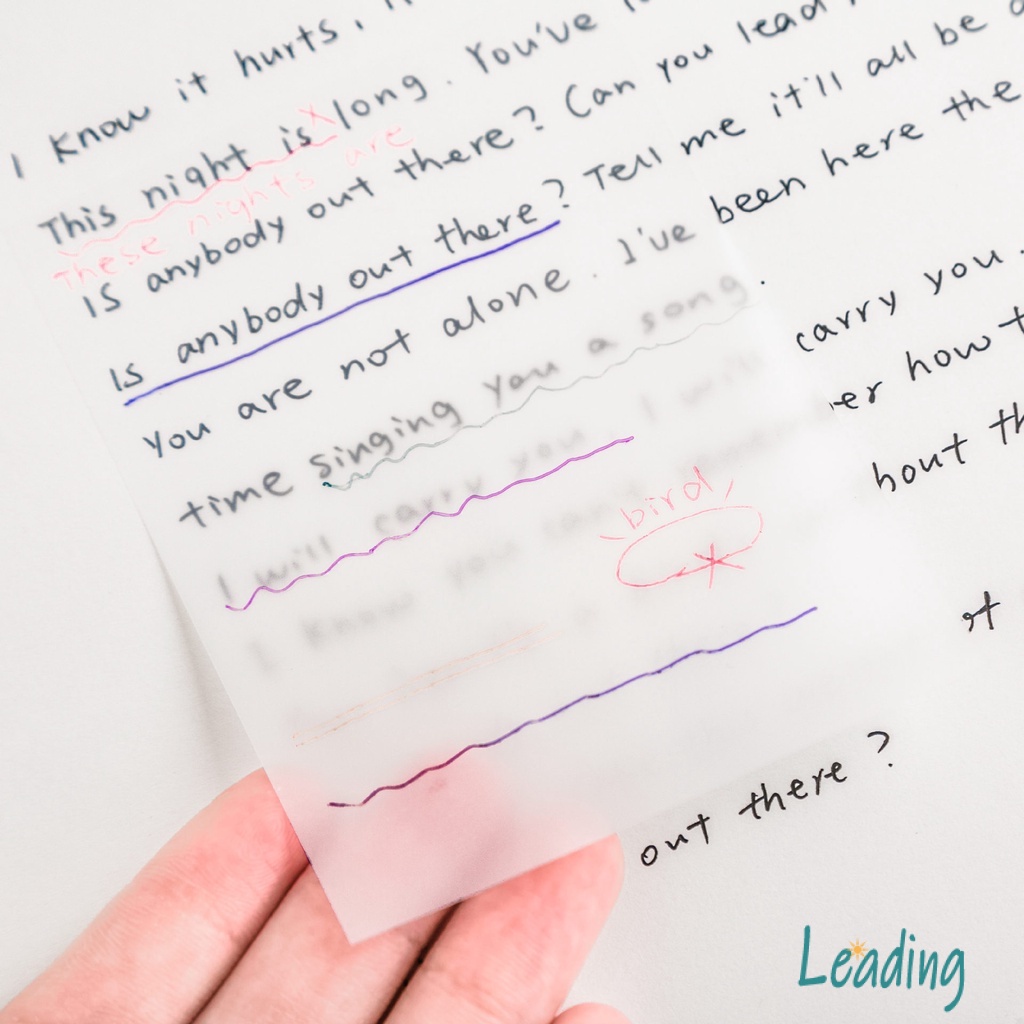 I know it hurts,
This night is long. You've
These nights are
Is anybody out there? Can you lead
Is anybody out there? Tell me it'll all be
You are not alone. I've been here the
time singing you a song.
I will carry you. I will carry you.
I know you can't how
bird
bout
out there?
Leading